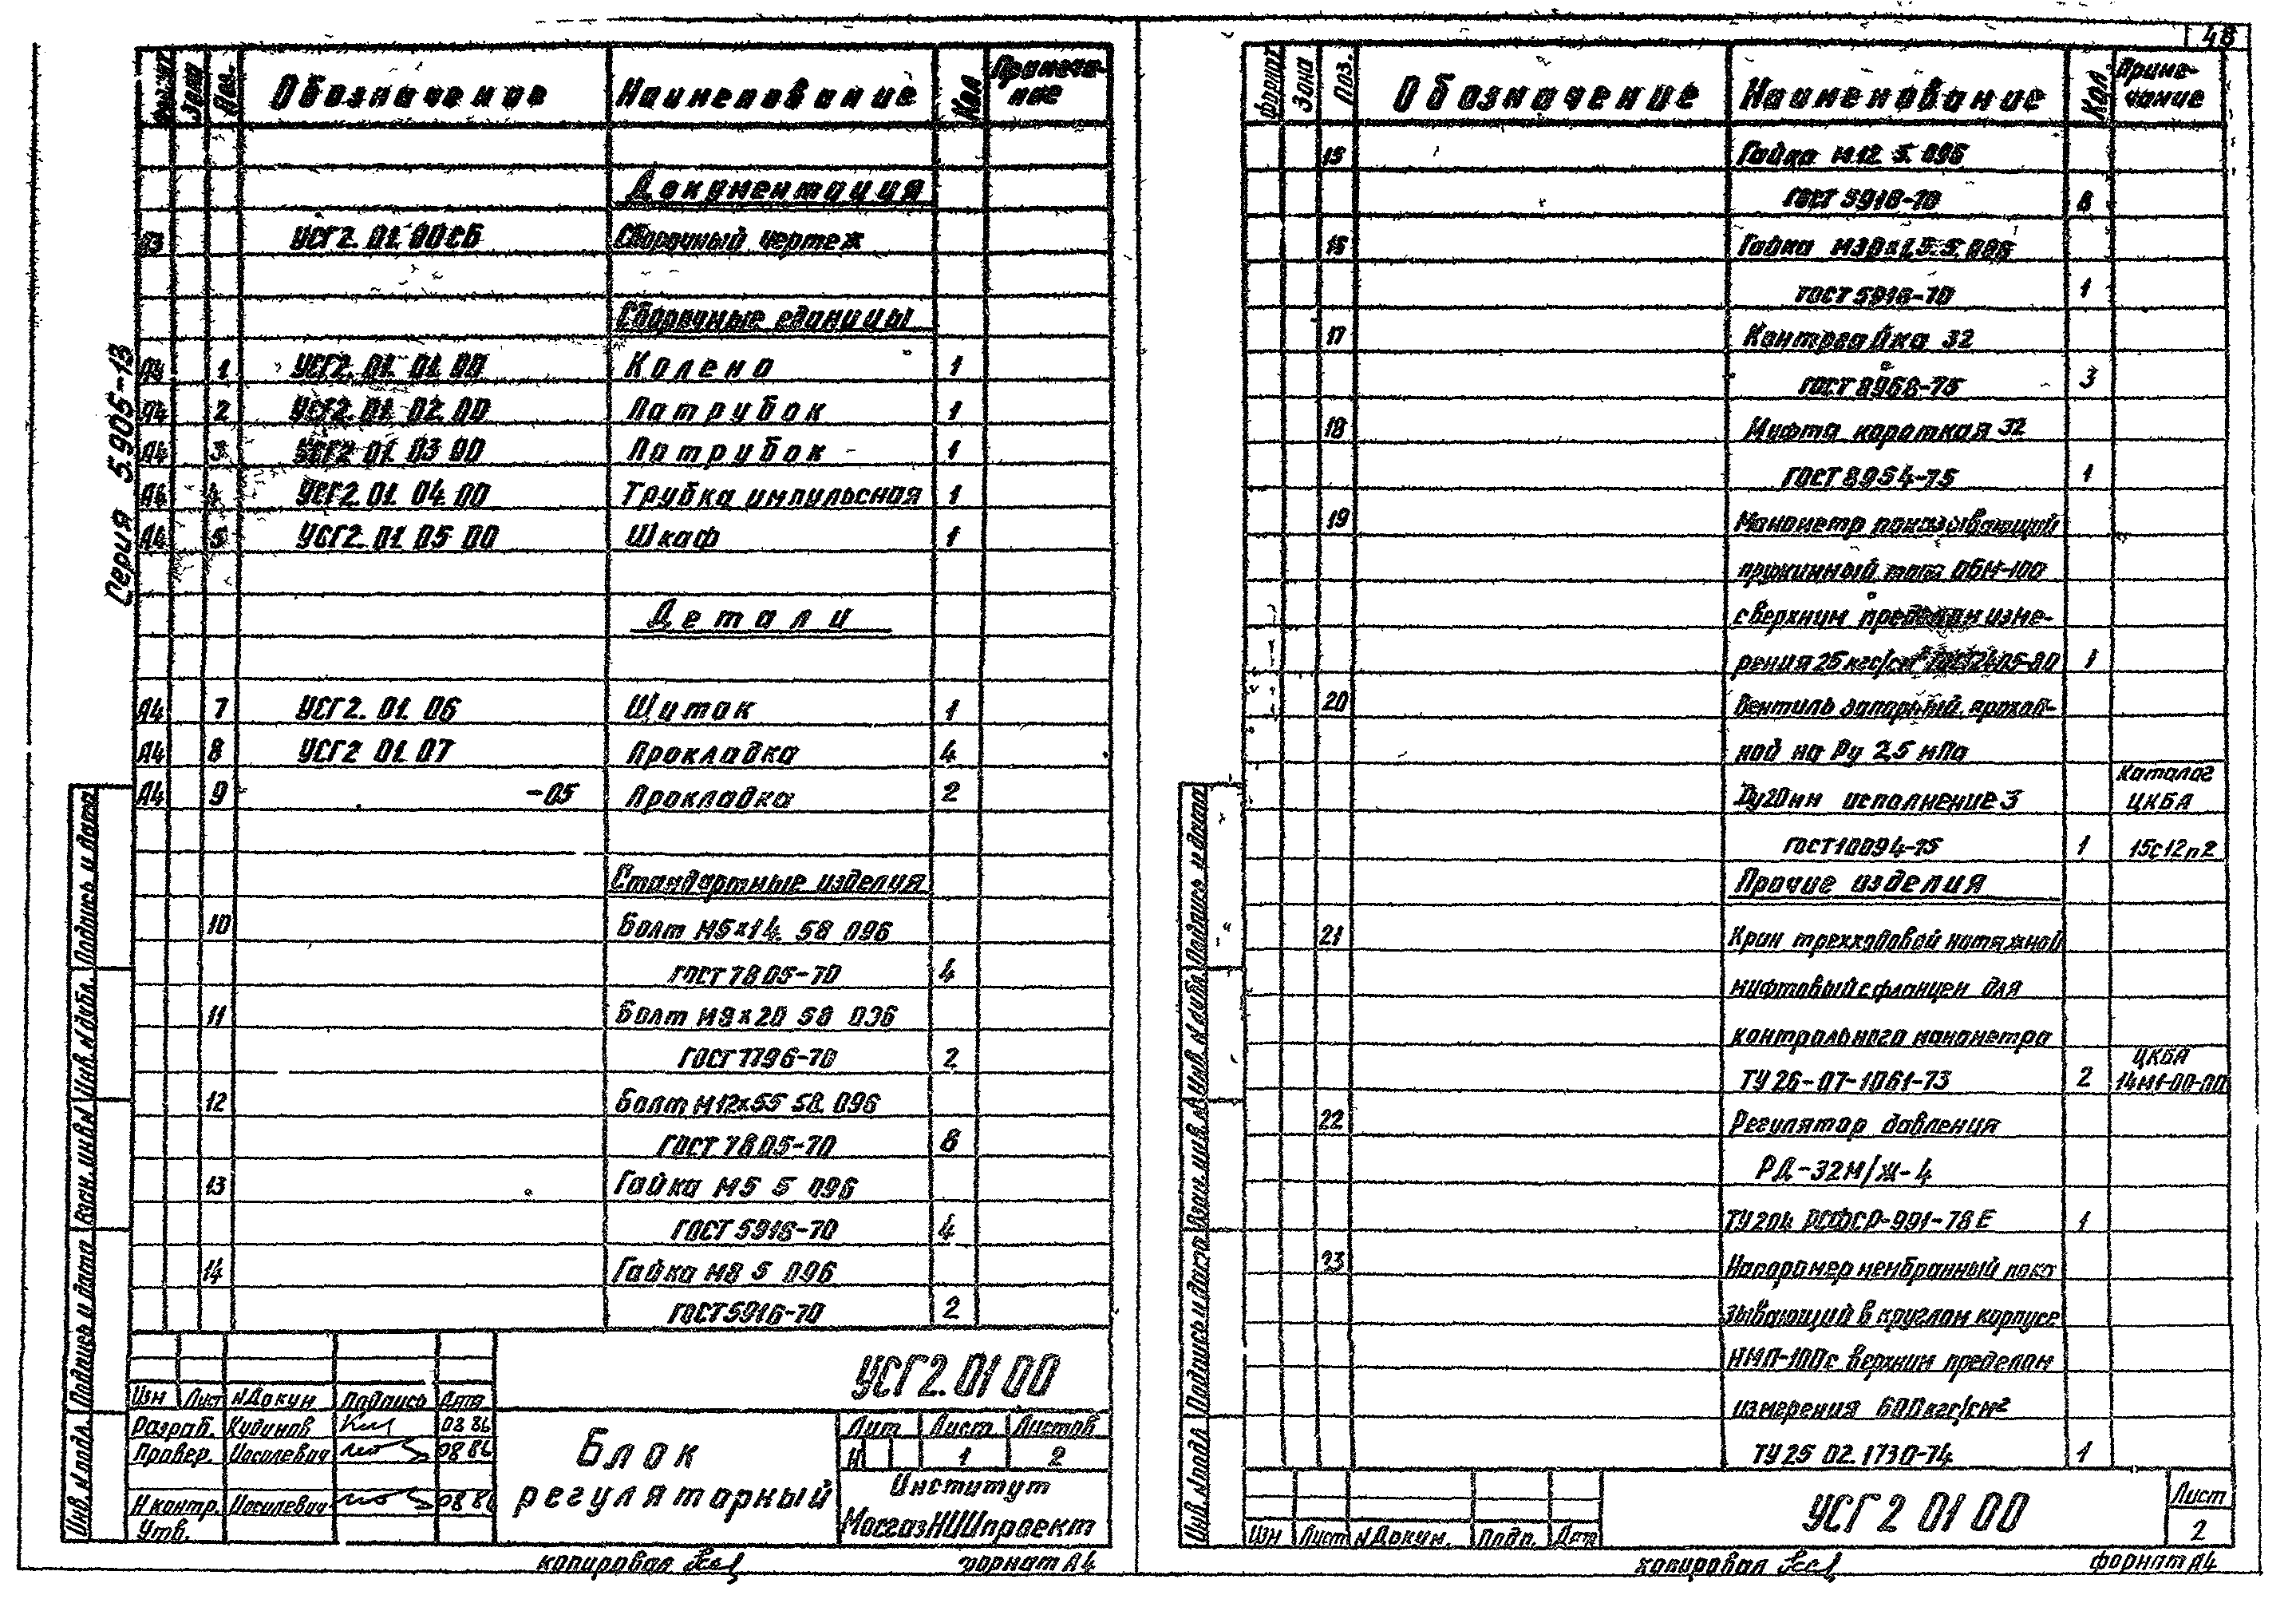 48
Серия 5.905-13
Формат Зона Поз. Обозначение Наименование Кол Примеча-
ние
Документация
А3 УСГ2. 01. 00 СБ Сборочный чертеж
Сборочные единицы
А4 1 УСГ2. 01. 01. 00 Колено 1
А4 2 УСГ2. 01. 02. 00 Патрубок 1
А4 3 УСГ2 01. 03 00 Патрубок 1
А4 4 УСГ2. 01. 04. 00 Трубка импульсная 1
А4 5 УСГ2. 01. 05 00 Шкаф 1
Детали
А4 7 УСГ2. 01. 06 Щиток 1
А4 8 УСГ2 01. 07 Прокладка 4
А4 9 -05 Прокладка 2
Стандартные изделия
10 Болт М5х14. 58 096
ГОСТ 7805-70 4
11 Болт М8х20 58 096
ГОСТ 7796-70 2
12 Болт М12х55 58. 096
ГОСТ 7805-70 8
13 Гайка М5 5 096
ГОСТ 5916-70 4
14 Гайка М8 5 096
ГОСТ 5916-70 2
Подпись и дата
Инв. № дубл.
Взам. инв. №
Подпись и дата
Инв. № подл.
УСГ2. 01 00
Изм Лист № Докум Подпись Дата
Разраб. Кудинов 08 86
Провер. Иоселевич 08 86
Н контр. Иоселевич 08 86
Утв.
Блок
регуляторный
Лит Лист Листов
И 1 2
Институт
МосгазНИИпроект
копировал формат А4
Формат Зона Поз. Обозначение Наименование Кол. Приме-
чание
15 Гайка М12. 5. 096
ГОСТ 5916-70 8
16 Гайка М30х1,5. 5. 096
ГОСТ 5916-70 1
17 Контргайка 32
ГОСТ 8968-75 3
18 Муфта короткая 32
ГОСТ 8954-75 1
19 Манометр показывающий
пружинный типа ОБМ-100
с верхним пределом изме-
рения 25 кгс/см² ГОСТ 2405-80 1
20 Вентиль запорный, проход-
ной на Ру 2,5 мПа
Ду20мм исполнение 3 Каталог
ЦКБА
ГОСТ 10094-75 1 15с12п2
Прочие изделия
21 Кран трехходовой натяжной
муфтовый с фланцем для
контрольного манометра
ТУ 26-07-1061-73 2 ЦКБА
14М1-00-00
22 Регулятор давления
РД-32М/Ж-4
ТУ 204 РСФСР-991-78 Е 1
23 Напоромер мембранный пока
зывающий в круглом корпусе
НМП-100 с верхним пределом
измерения 600 кгс/см²
ТУ 25 02. 1730-74 1
Подпись и дата
Инв. № дубл.
Взам. инв. №
Подпись и дата
Инв. № подл.
Изм Лист № Докум. Подп. Дата
УСГ 2 01 00
Лист
2
копировал формат А4